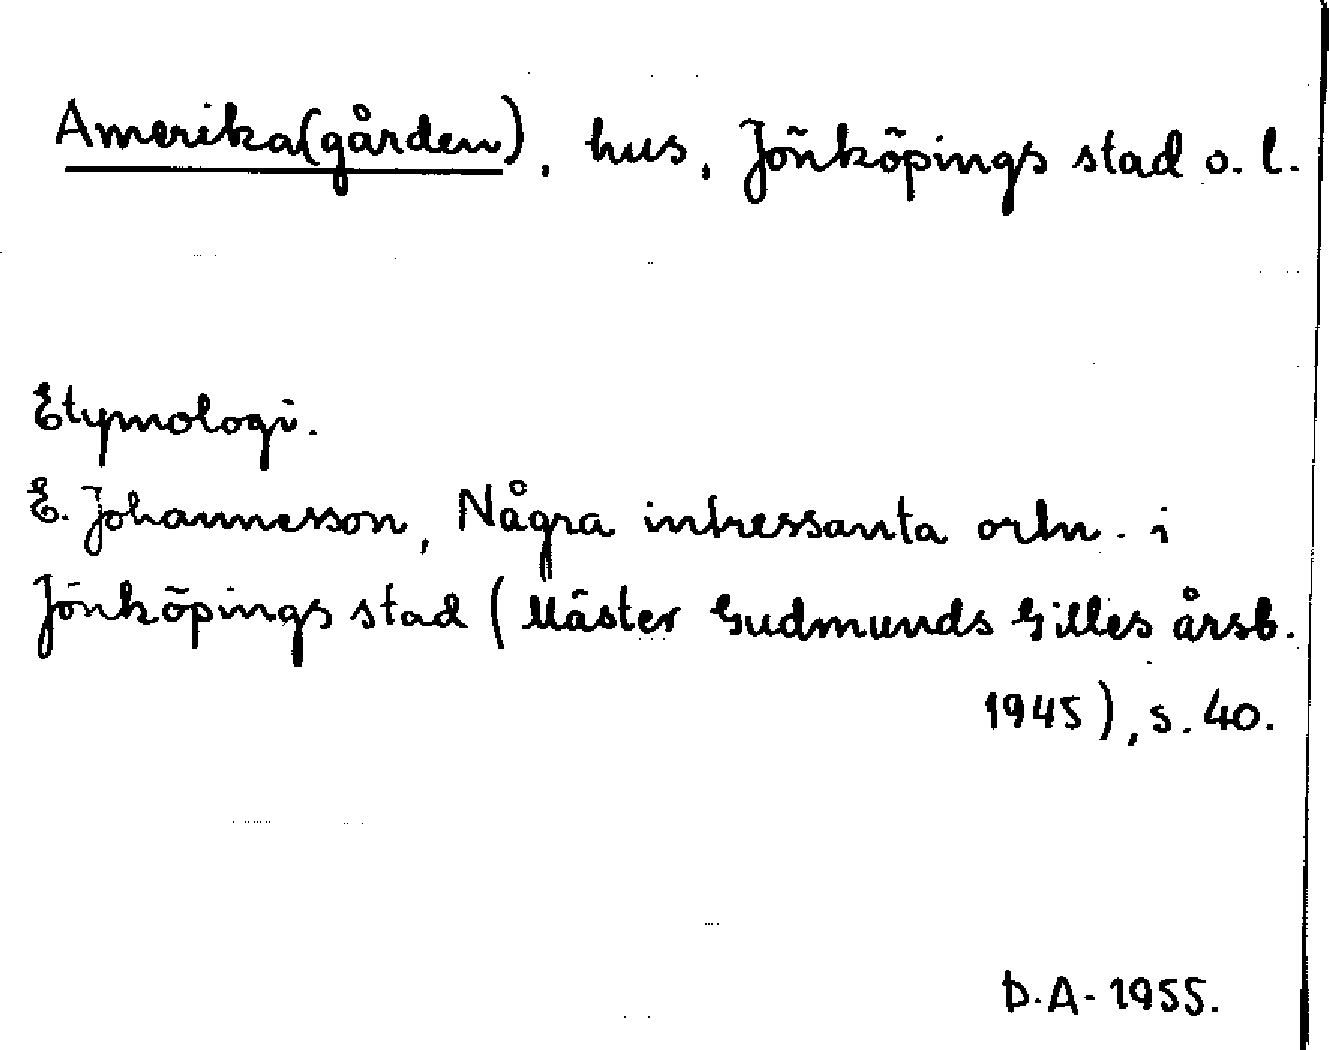 Amerika(gården), hus, Jönköpings stad o. l.
Etymologi.
E. Johannesson, Några intressanta ortn. i
Jönköpings stad (Mäster Gudmunds Gilles årsb.
1945), s. 40.
D.A. 1955.